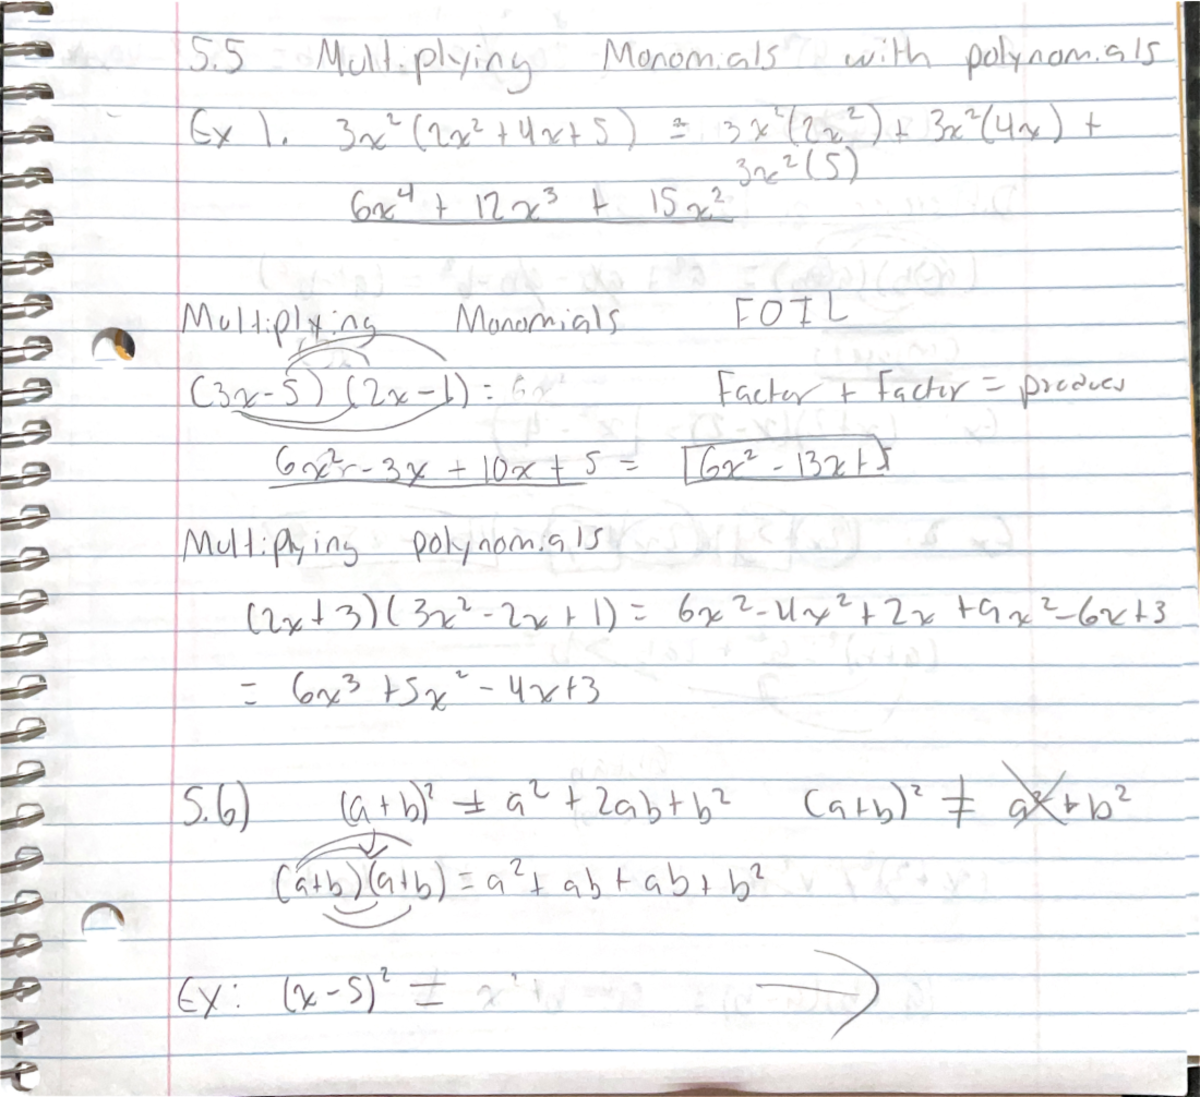 5.5 Multiplying Monomials with polynomials
Ex 1. 3x²(2x² + 4x + 5) = 3x²(2x²) + 3x²(4x) +
3x²(5)
6x⁴ + 12x³ + 15x²
Multiplying Monomials FOIL
(3x-5)(2x-1) = 6x² Factor + Factor = product
6x² - 3x + 10x + 5 = 6x² - 13x + 5
Multiplying polynomials
(2x+3)(3x²-2x+1) = 6x²-4x²+2x+9x²-6x+3
= 6x³ +5x² - 4x+3
5.6) (a+b)² = a² + 2ab+b² (a+b)² ≠ a²+b²
(a+b)(a+b) = a²+ ab + ab + b²
Ex: (x-5)² ≠ x²+